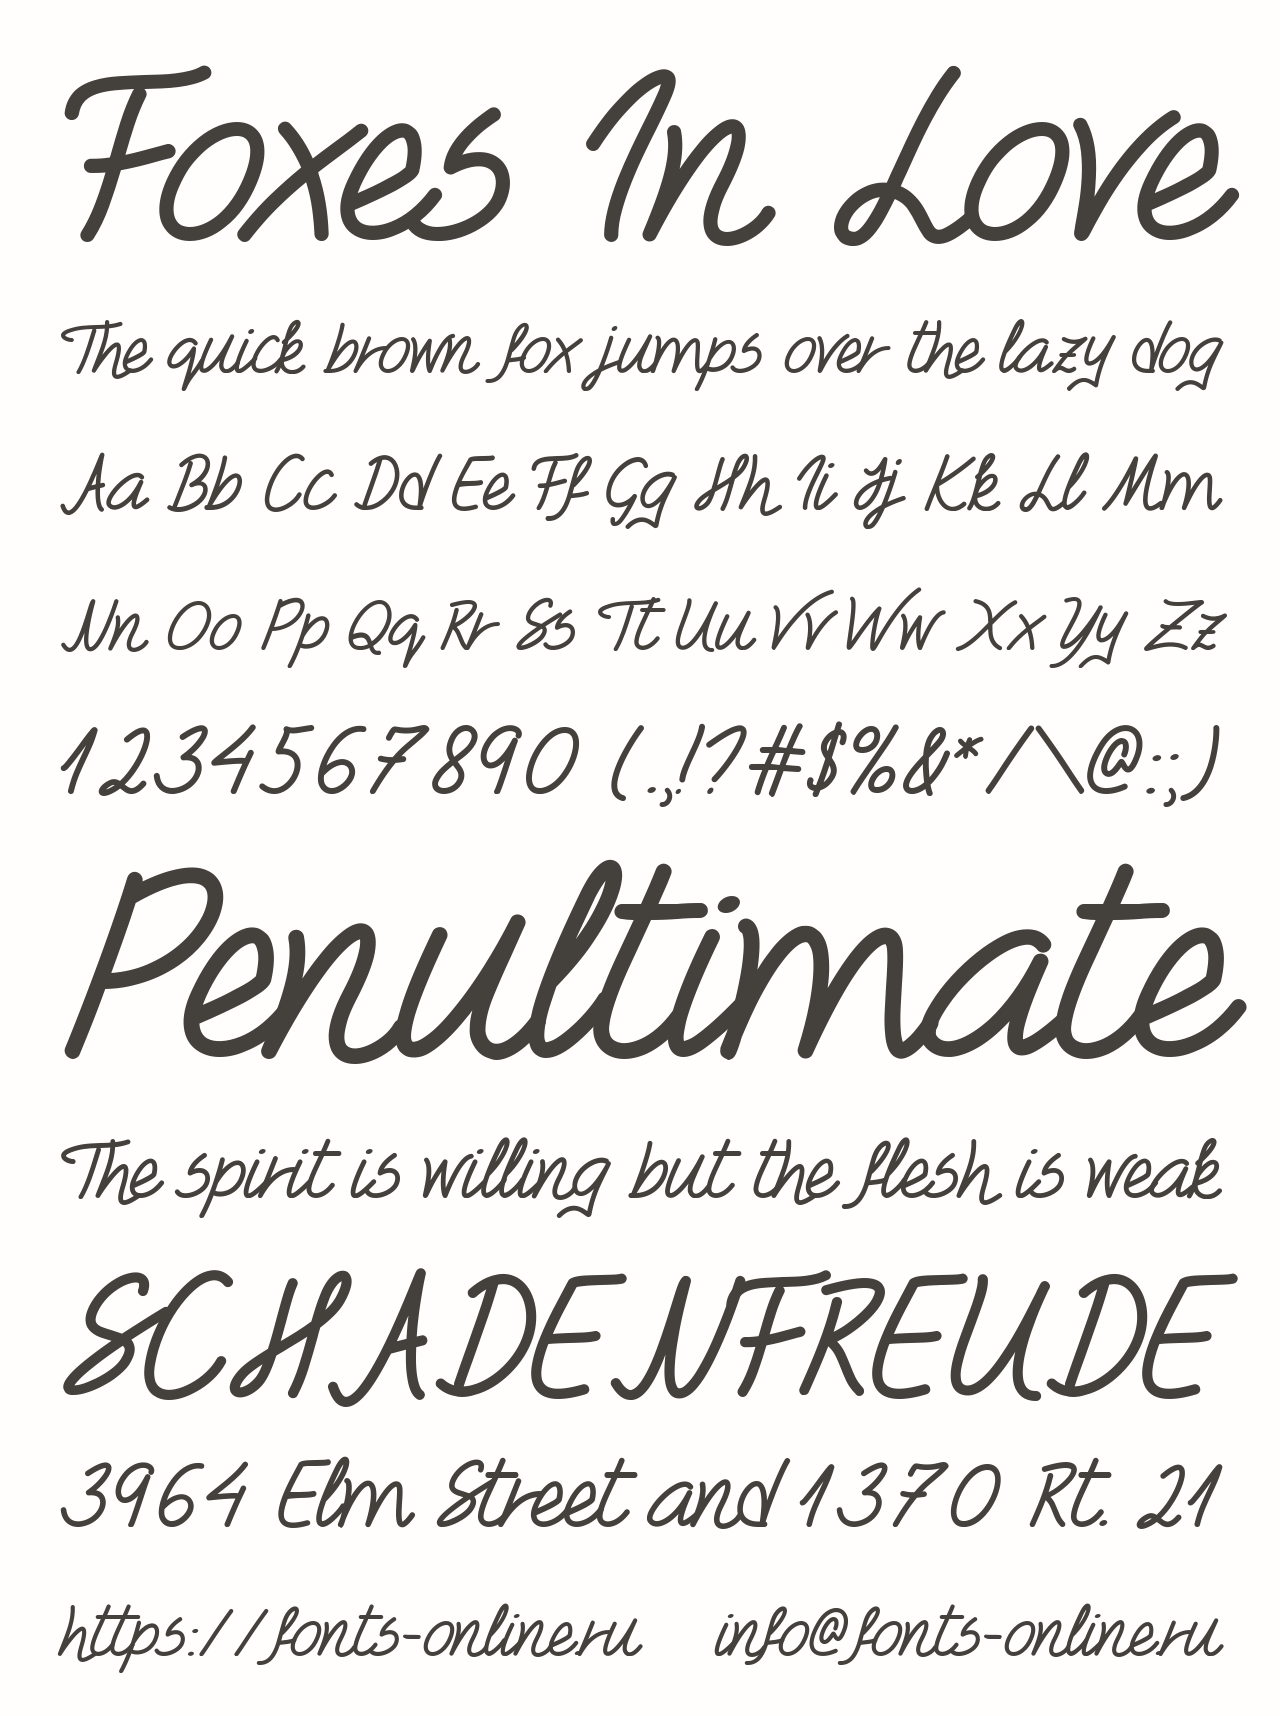 Foxes In Love
The quick brown fox jumps over the lazy dog
Aa Bb Cc Dd Ee Ff Gg Hh Ii Jj Kk Ll Mm
Nn Oo Pp Qq Rr Ss Tt Uu Vv Ww Xx Yy Zz
1234567890 (.,!?#$%&*/\@:;)
Penultimate
The spirit is willing but the flesh is weak
SCHADENFREUDE
3964 Elm Street and 1370 Rt. 21
https://fonts-online.ru info@fonts-online.ru